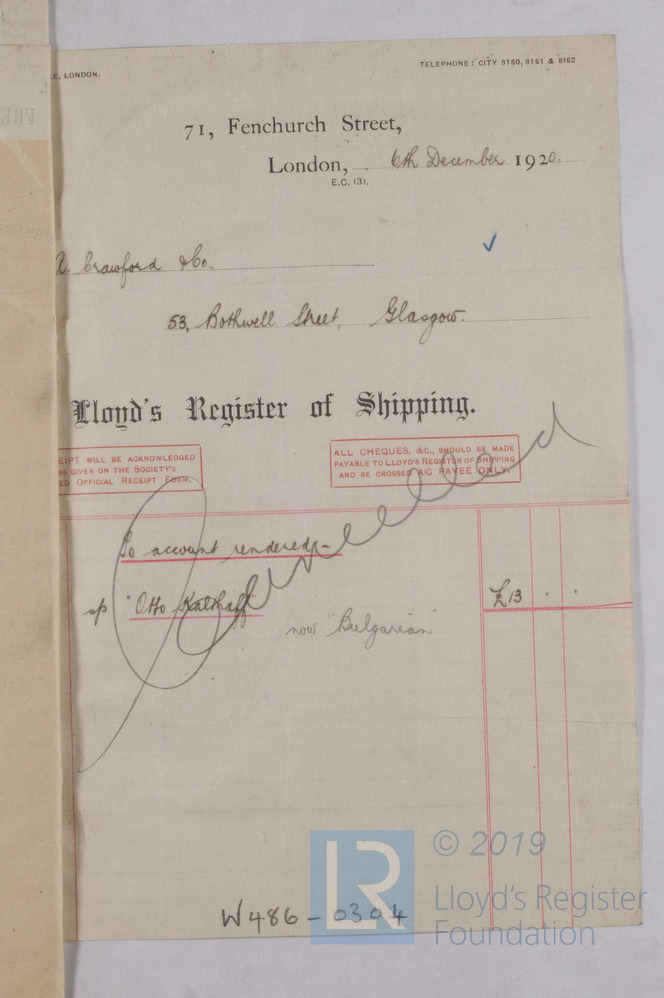 E, LONDON.
TELEPHONE: CITY 8160, 8161 & 8162
71, Fenchurch Street,
London, 6th December 1920.
E.C. (3).
Crawford & Co.
53, Bothwell Street, Glasgow.
Lloyd's Register of Shipping.
EIPT WILL BE ACKNOWLEDGED
GIVEN ON THE SOCIETY'S
ED OFFICIAL RECEIPT FORM.
ALL CHEQUES, &C., SHOULD BE MADE
PAYABLE TO LLOYD'S REGISTER OF SHIPPING
AND BE CROSSED A/C PAYEE ONLY.
Cancelled
To account rendered:-
"Otto " £13 . .
now "Bulgarian"
W486-0304
LR
© 2019
Lloyd's Register
Foundation